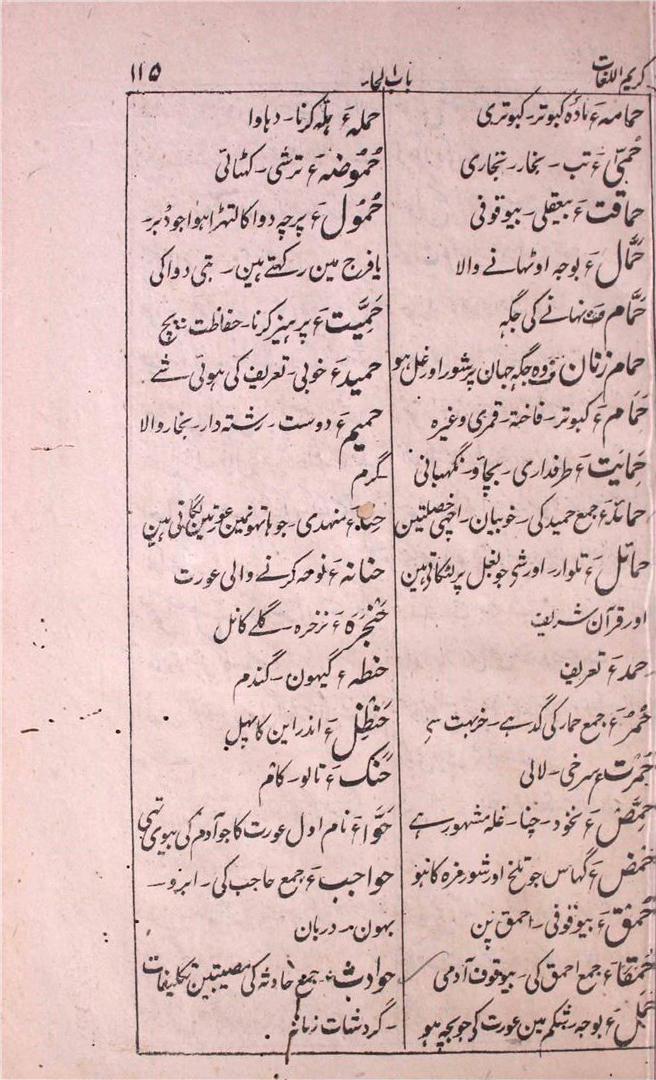 کریم اللغات
باب الحا۔
۱۱۵
حمامہ ع مادہ کبوتر۔ کبوتری
حُمّیٰ ع تپ۔ بخار۔
حماقت ع بیعقلی۔ بیوقوفی
حمّال ع بوجہ اوٹہانے والا
حمّام نہانے کی جگہ
حمام زنان وہ جگہ جہان پر شور اور غل ہو
حَمَام ع کبوتر۔ فاختہ۔ قمری وغیرہ
حمایت ع طرفداری۔ بچاؤ۔ نگہبانی
حمائد ع جمع حمید کی۔ خوبیان۔ اچہی خصلتین
حمائل ع تلوار۔ اور شی جو بغل پر لٹکاتی ہین
اور قرآن شریف
حمد ع تعریف
حُمُر ع جمع حمار کی گدہے۔
حُمرت ع سرخی۔ لالی
حِمّص ع نخود۔ چنا۔ غلہ مشہور ہے
حمض ع گہاس جو تلخ اور شور مزہ کا ہو
حُمق ع بیوقوفی۔ احمق پن
حُمَقا ع جمع احمق کی۔ بیوقوف آدمی
حَمل ع بوجہ۔ شکم مین عورت کی جو بچہ ہو
حملہ ع ہلّہ کرنا۔ دہاوا
حُمُوضہ ع ترشی۔ کہٹائی
حُمُول ع پرچہ دوا کا لتہڑا ہوا جو دُبر۔
یا فرج مین رکہتے ہین۔ بتی دوا کی
حَمِیَّت ع پرہیز کرنا۔ حفاظت
حمید ع خوبی۔ تعریف کی ہوئی شے
حمیم ع دوست۔ رشتہ دار۔ بخار والا
گرم
حنا ع منہدی۔ جو ہاتہونمین عورتین لگاتی ہین
حنانہ ع نوحہ کرنے والی عورت
حَنْجَرَہ ع نرخرہ۔ گلے کا نل
حنطہ ع گیہون۔ گندم
حَنظل ع اندراین کا پہل
حَنَک ع تالو۔ کام
حَوّا ع نام اول عورت کا جو آدم کی بیوی تہی
حواجب ع جمع حاجب کی۔ ابرو۔
بہون۔ دربان
حوادث ع جمع حادثہ کی مصیبتین تکلیفات
۔ گردشات زمانہ